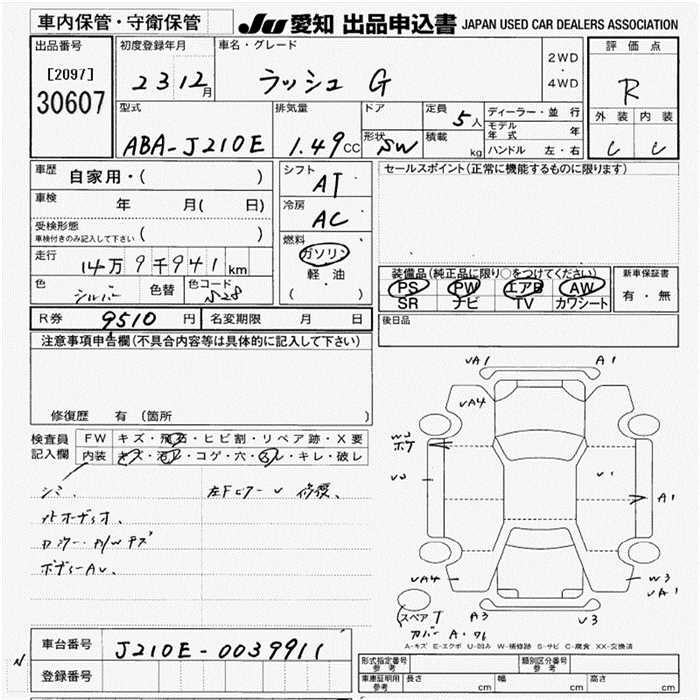 車内保管・守衛保管
JU 愛知 出品申込書 JAPAN USED CAR DEALERS ASSOCIATION
出品番号
[2097]
30607
初度登録年月
23 12月
車名・グレード
ラッシュ G
2WD
・
4WD
評価点
R
外装 内装
C C
型式
ABA-J210E
排気量
1.49CC
ドア
形状 SW
定員
5人
積載
kg
ディーラー・並行
モデル年式 年
ハンドル 左・右
車歴 自家用・( )
車検 年 月( 日)
受検形態
車検付きのみ記入して下さい ( )
走行 14万9千941km
色 シルバー 色替 色コード S28
シフト
AT
冷房
AC
燃料
ガソリン
軽・油
( )
セールスポイント(正常に機能するものに限ります)
装備品(純正品に限り○をつけてください)
PS PW エアB AW
SR ナビ TV カワシート
新車保証書
有・無
R券 9510円 名変期限 月 日
後日品
注意事項申告欄(不具合内容等は具体的に記入して下さい)
修復歴 有(箇所 )
検査員
記入欄
FW キズ・飛石・ヒビ割・リペア跡・X要
内装 キズ・汚レ・コゲ・穴・スレ・キレ・破レ
シミ、
左Fピラー 修復、
メトオーディオ、
ボディーAU、
UA1 A1
UA4
W3
ホケ
U2
U1
A1
UA4
W3
UA1
スペア
T
カバー A・ワレ
A3
U3
A-キズ E-エクボ U-凹み W-補修跡 S-サビ C-腐食 XX-交換済
車台番号 J210E-0039911
登録番号
型式指定番号
参考
類別区分番号
参考
車庫証明用
参考
長さ cm 幅 cm 高さ cm